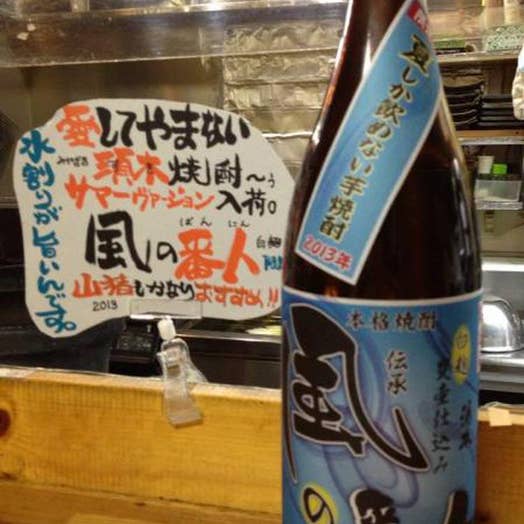 愛してやまない
須木焼酎〜う
サマーヴァージョン入荷。
ばんにん
風の番人
山猪もかなりおすすめ!!
2013
水割りが旨いんです。
夏しか飲めない芋焼酎
2013年
本格焼酎
伝承
風の番人
白麹
仕込み